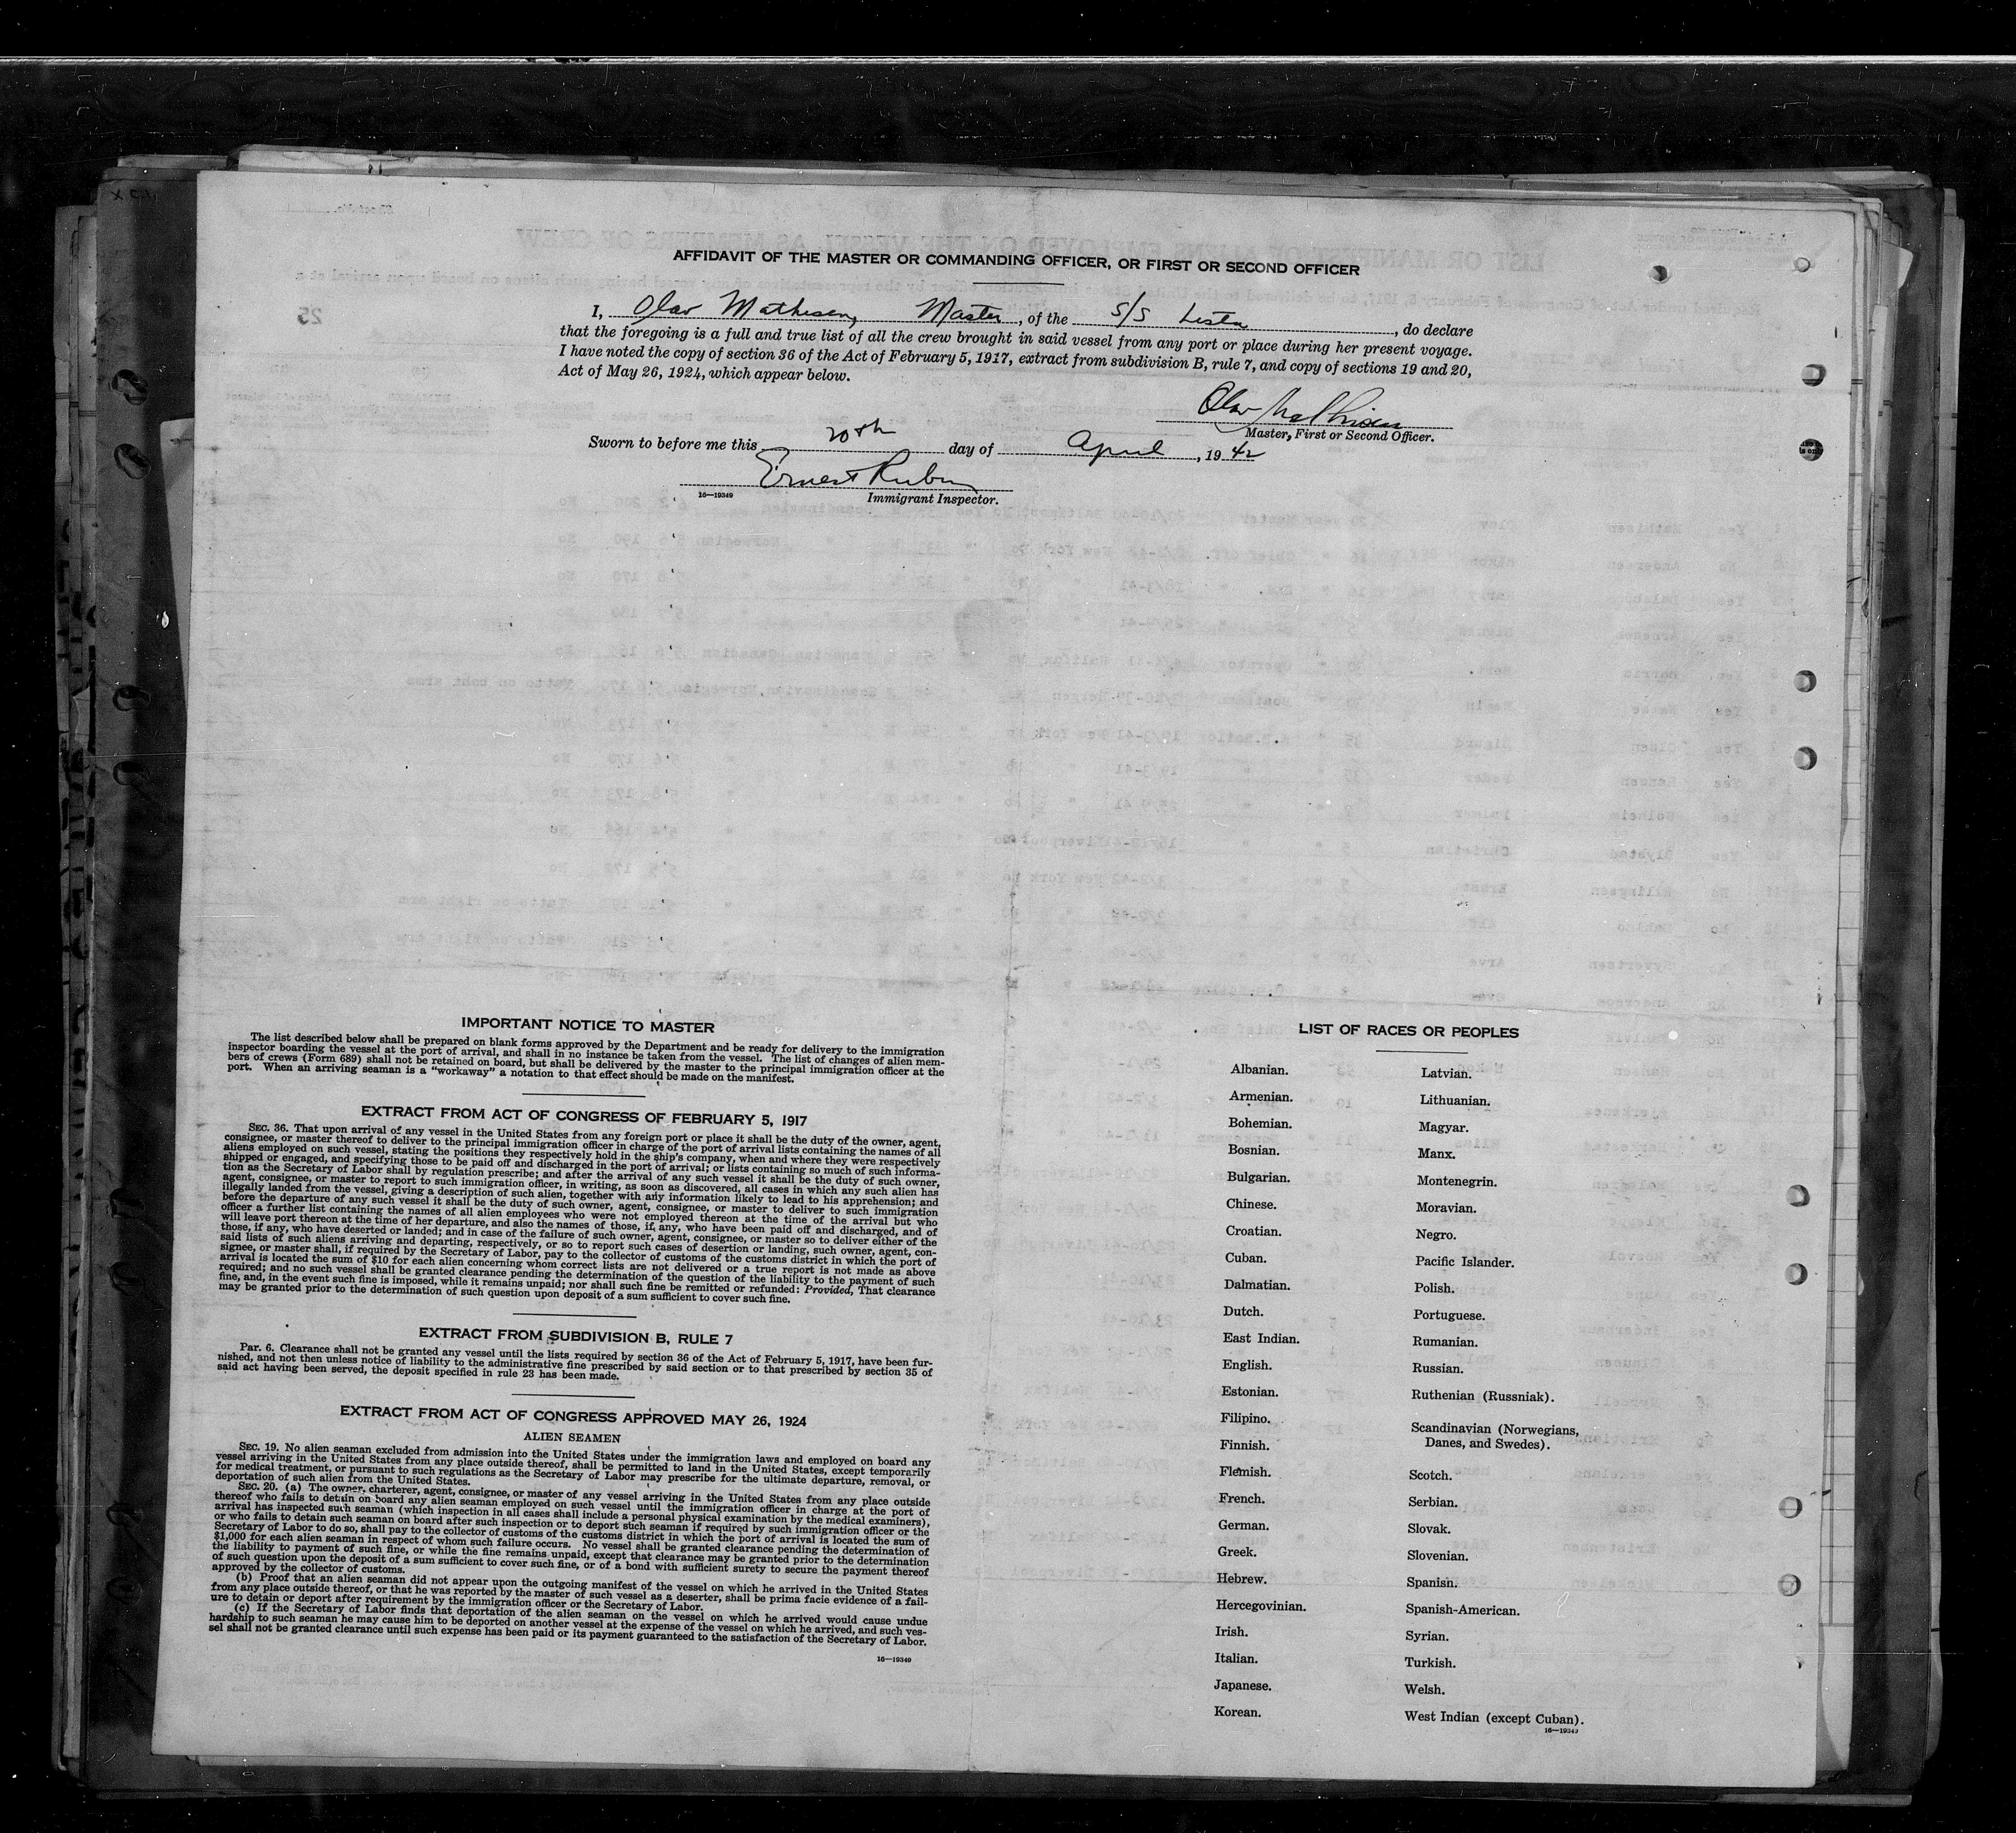 AFFIDAVIT OF THE MASTER OR COMMANDING OFFICER, OR FIRST OR SECOND OFFICER
I, Olav Mathisen, Master, of the S/S Lista, do declare
that the foregoing is a full and true list of all the crew brought in said vessel from any port or place during her present voyage.
I have noted the copy of section 36 of the Act of February 5, 1917, extract from subdivision B, rule 7, and copy of sections 19 and 20,
Act of May 26, 1924, which appear below.
Olav Mathisen
Master, First or Second Officer.
Sworn to before me this 20th day of April, 1942
Ernest Rubin
16—19349 Immigrant Inspector.
IMPORTANT NOTICE TO MASTER
The list described below shall be prepared on blank forms approved by the Department and be ready for delivery to the immigration
inspector boarding the vessel at the port of arrival, and shall in no instance be taken from the vessel. The list of changes of alien mem-
bers of crews (Form 689) shall not be retained on board, but shall be delivered by the master to the principal immigration officer at the
port. When an arriving seaman is a "workaway" a notation to that effect should be made on the manifest.
EXTRACT FROM ACT OF CONGRESS OF FEBRUARY 5, 1917
SEC. 36. That upon arrival of any vessel in the United States from any foreign port or place it shall be the duty of the owner, agent,
consignee, or master thereof to deliver to the principal immigration officer in charge of the port of arrival lists containing the names of all
aliens employed on such vessel, stating the positions they respectively hold in the ship's company, when and where they were respectively
shipped or engaged, and specifying those to be paid off and discharged in the port of arrival; or lists containing so much of such informa-
tion as the Secretary of Labor shall by regulation prescribe; and after the arrival of any such vessel it shall be the duty of such owner,
agent, consignee, or master to report to such immigration officer, in writing, as soon as discovered, all cases in which any such alien has
illegally landed from the vessel, giving a description of such alien, together with any information likely to lead to his apprehension; and
before the departure of any such vessel it shall be the duty of such owner, agent, consignee, or master to deliver to such immigration
officer a further list containing the names of all alien employees who were not employed thereon at the time of the arrival but who
will leave port thereon at the time of her departure, and also the names of those, if any, who have been paid off and discharged, and of
those, if any, who have deserted or landed; and in case of the failure of such owner, agent, consignee, or master so to deliver either of the
said lists of such aliens arriving and departing, respectively, or so to report such cases of desertion or landing, such owner, agent, con-
signee, or master shall, if required by the Secretary of Labor, pay to the collector of customs of the customs district in which the port of
arrival is located the sum of $10 for each alien concerning whom correct lists are not delivered or a true report is not made as above
required; and no such vessel shall be granted clearance pending the determination of the question of the liability to the payment of such
fine, and, in the event such fine is imposed, while it remains unpaid; nor shall such fine be remitted or refunded: Provided, That clearance
may be granted prior to the determination of such question upon deposit of a sum sufficient to cover such fine.
EXTRACT FROM SUBDIVISION B, RULE 7
Par. 6. Clearance shall not be granted any vessel until the lists required by section 36 of the Act of February 5, 1917, have been fur-
nished, and not then unless notice of liability to the administrative fine prescribed by said section or to that prescribed by section 35 of
said act having been served, the deposit specified in rule 23 has been made.
EXTRACT FROM ACT OF CONGRESS APPROVED MAY 26, 1924
ALIEN SEAMEN
SEC. 19. No alien seaman excluded from admission into the United States under the immigration laws and employed on board any
vessel arriving in the United States from any place outside thereof, shall be permitted to land in the United States, except temporarily
for medical treatment, or pursuant to such regulations as the Secretary of Labor may prescribe for the ultimate departure, removal, or
deportation of such alien from the United States.
SEC. 20. (a) The owner, charterer, agent, consignee, or master of any vessel arriving in the United States from any place outside
thereof who fails to detain on board any alien seaman employed on such vessel until the immigration officer in charge at the port of
arrival has inspected such seaman (which inspection in all cases shall include a personal physical examination by the medical examiners),
or who fails to detain such seaman on board after such inspection or to deport such seaman if required by such immigration officer or the
Secretary of Labor to do so, shall pay to the collector of customs of the customs district in which the port of arrival is located the sum of
$1,000 for each alien seaman in respect of whom such failure occurs. No vessel shall be granted clearance pending the determination of
the liability to payment of such fine, or while the fine remains unpaid, except that clearance may be granted prior to the determination
of such question upon the deposit of a sum sufficient to cover such fine, or of a bond with sufficient surety to secure the payment thereof
approved by the collector of customs.
(b) Proof that an alien seaman did not appear upon the outgoing manifest of the vessel on which he arrived in the United States
from any place outside thereof, or that he was reported by the master of such vessel as a deserter, shall be prima facie evidence of a fail-
ure to detain or deport after requirement by the immigration officer or the Secretary of Labor.
(c) If the Secretary of Labor finds that deportation of the alien seaman on the vessel on which he arrived would cause undue
hardship to such seaman he may cause him to be deported on another vessel at the expense of the vessel on which he arrived, and such ves-
sel shall not be granted clearance until such expense has been paid or its payment guaranteed to the satisfaction of the Secretary of Labor.
16—19349
LIST OF RACES OR PEOPLES
Albanian.
Armenian.
Bohemian.
Bosnian.
Bulgarian.
Chinese.
Croatian.
Cuban.
Dalmatian.
Dutch.
East Indian.
English.
Estonian.
Filipino.
Finnish.
Flemish.
French.
German.
Greek.
Hebrew.
Hercegovinian.
Irish.
Italian.
Japanese.
Korean.
Latvian.
Lithuanian.
Magyar.
Manx.
Montenegrin.
Moravian.
Negro.
Pacific Islander.
Polish.
Portuguese.
Rumanian.
Russian.
Ruthenian (Russniak).
Scandinavian (Norwegians,
Danes, and Swedes).
Scotch.
Serbian.
Slovak.
Slovenian.
Spanish.
Spanish-American.
Syrian.
Turkish.
Welsh.
West Indian (except Cuban).
16—19349